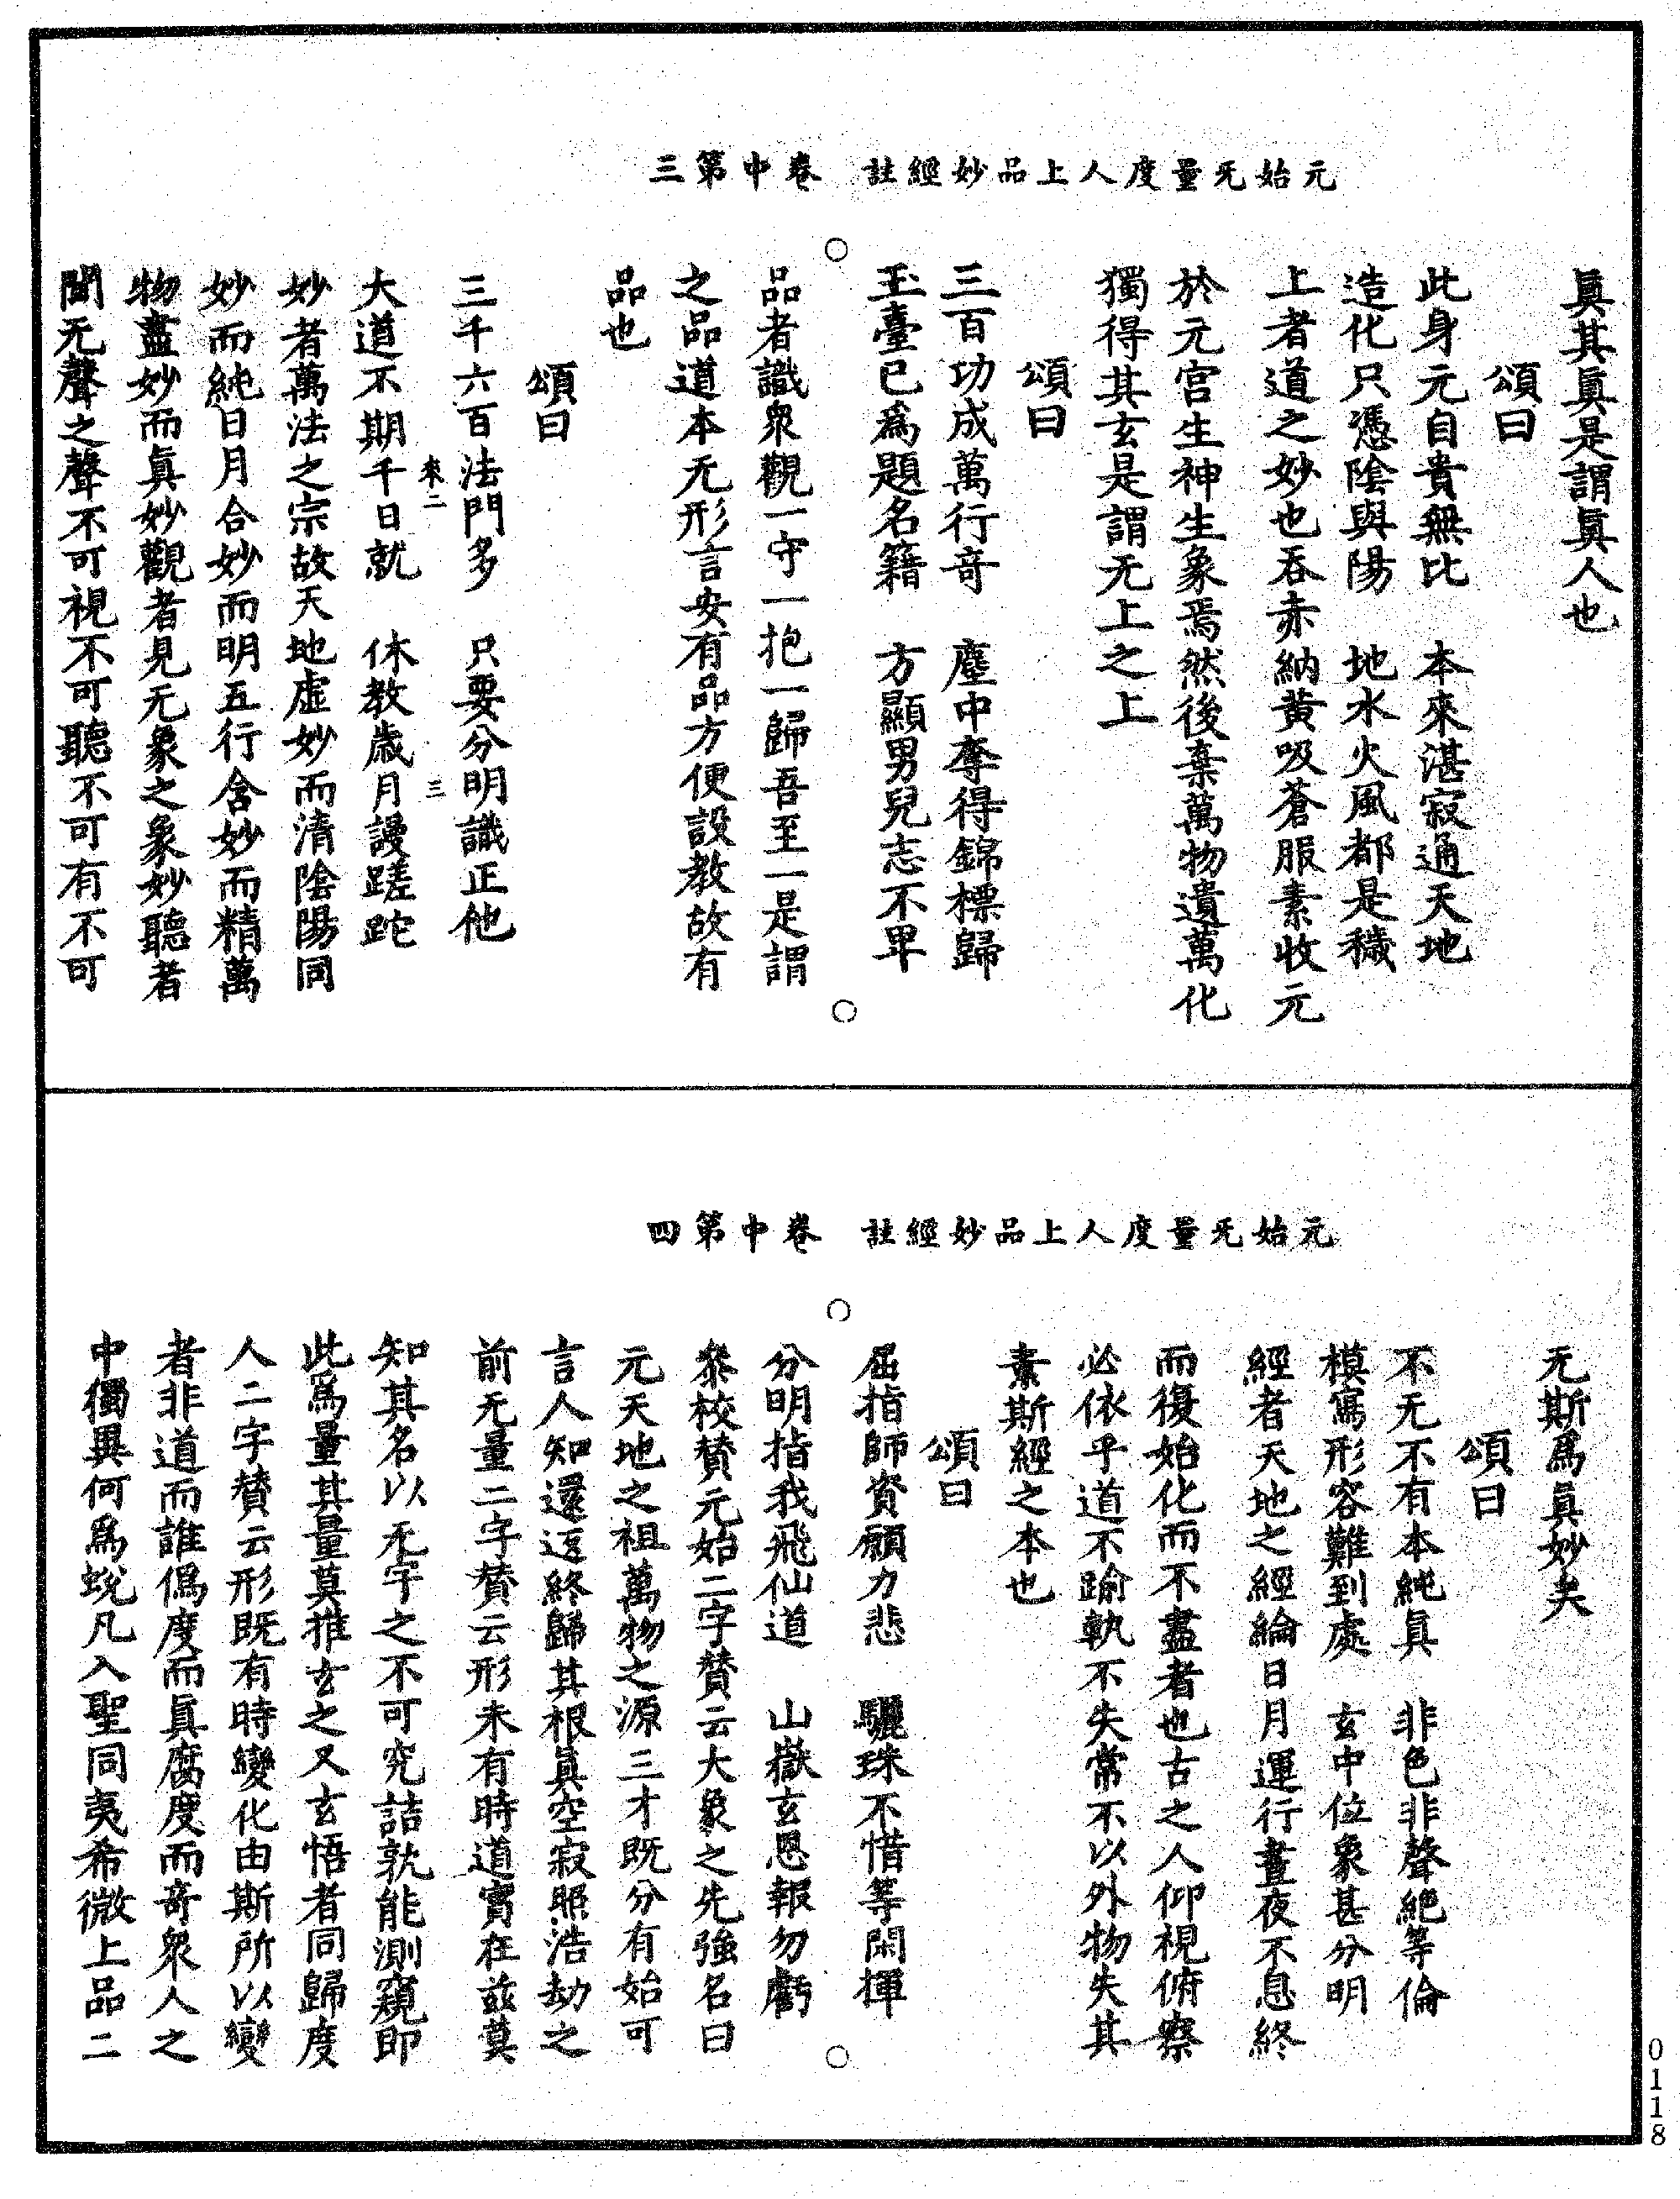 元始无量度人上品妙經註　卷中第三
眞其眞是謂眞人也
頌曰
此身元自貴無比　本來湛寂通天地
造化只憑陰與陽　地水火風都是穢
上者道之妙也吞赤納黃吸蒼服素收元
於元宫生神生象焉然後棄萬物遺萬化
獨得其玄是謂无上之上
頌曰
三百功成萬行竒　塵中奪得錦標歸
玉臺已爲題名籍　方顯男兒志不卑
品者識衆觀一守一抱一歸吾至一是謂
之品道本无形言安有品方便設教故有
品也
頌曰
三千六百法門多　只要分明識正他
來二　三
大道不期千日就　休教歲月謾蹉跎
妙者萬法之宗故天地虛妙而清陰陽同
妙而純日月合妙而明五行含妙而精萬
物盡妙而眞妙觀者見无象之象妙聽者
聞无聲之聲不可視不可聽不可有不可
元始无量度人上品妙經註　卷中第四
无斯爲眞妙矣
頌曰
不无不有本純眞　非色非聲絕等倫
模寫形容難到處　玄中位象甚分明
經者天地之經綸日月運行晝夜不息終
而復始化而不盡者也古之人仰視俯察
必依乎道不踰軌不失常不以外物失其
素斯經之本也
頌曰
屈指師資願力悲　驪珠不惜等閑揮
分明指我飛仙道　山嶽玄恩報勿虧
叅校贊元始二字贊云大象之先強名曰
元天地之祖萬物之源三才既分有始可
言人知還返終歸其根眞空寂照浩劫之
前无量二字贊云形未有時道實在兹莫
知其名以无字之不可究詰孰能測窺即
此爲量其量莫推玄之又玄悟者同歸度
人二字贊云形既有時變化由斯所以變
者非道而誰僞度而眞腐度而竒衆人之
中獨異何爲蛻凡入聖同夷希微上品二
0118